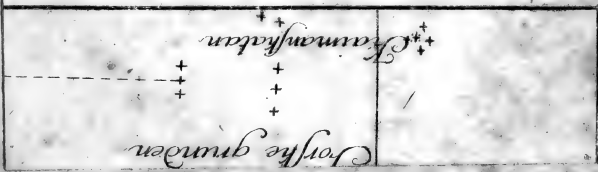 Torſke grunden
Raumanſkatan